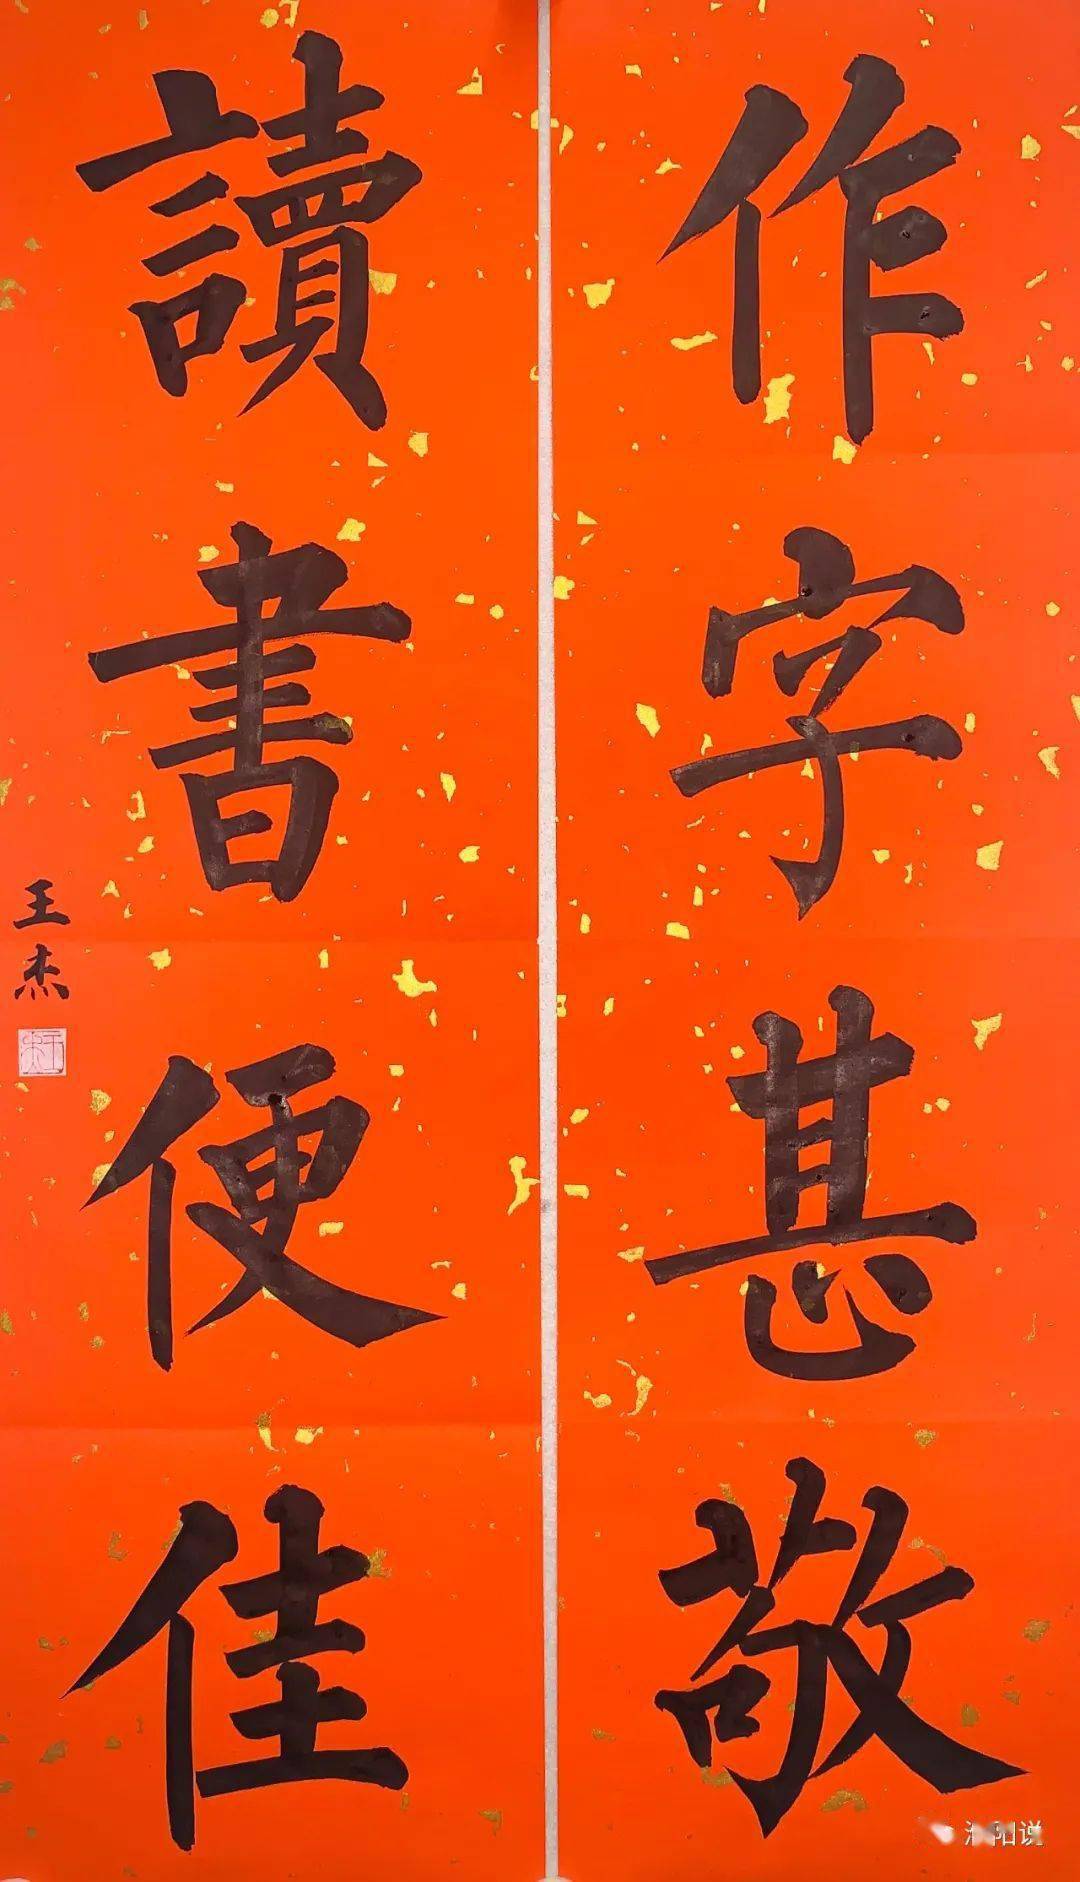 作字甚敬
讀書便佳
王杰